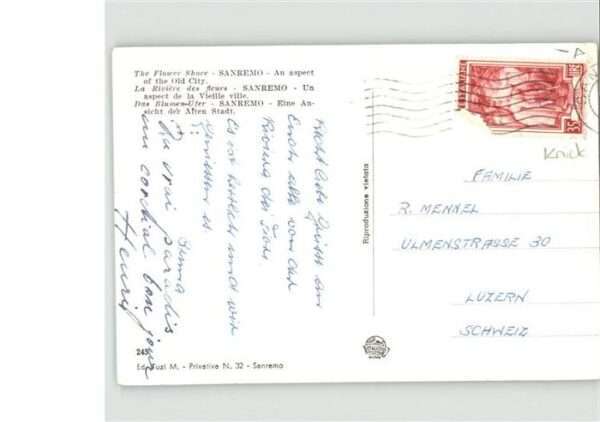 The Flower Shore - SANREMO - An aspect
of the Old City.
La Rivière des fleurs - SANREMO - Un
aspect de la Vieille ville.
Das Blumen-Ufer - SANREMO - Eine An-
sicht der Alten Stadt.
Recht liebe Grüsse an
Euch alle von der
Riviera dei Fiori.
Es ist herrlich und wir
geniessen es
Un vrai paradis
un cordial bonjour
Henri
Riproduzione vietata
Knick
FAMILIE
R. MENNEL
ULMENSTRASSE 30
LUZERN
SCHWEIZ
245
Ed. Tuzi M. - Privative N. 32 - Sanremo